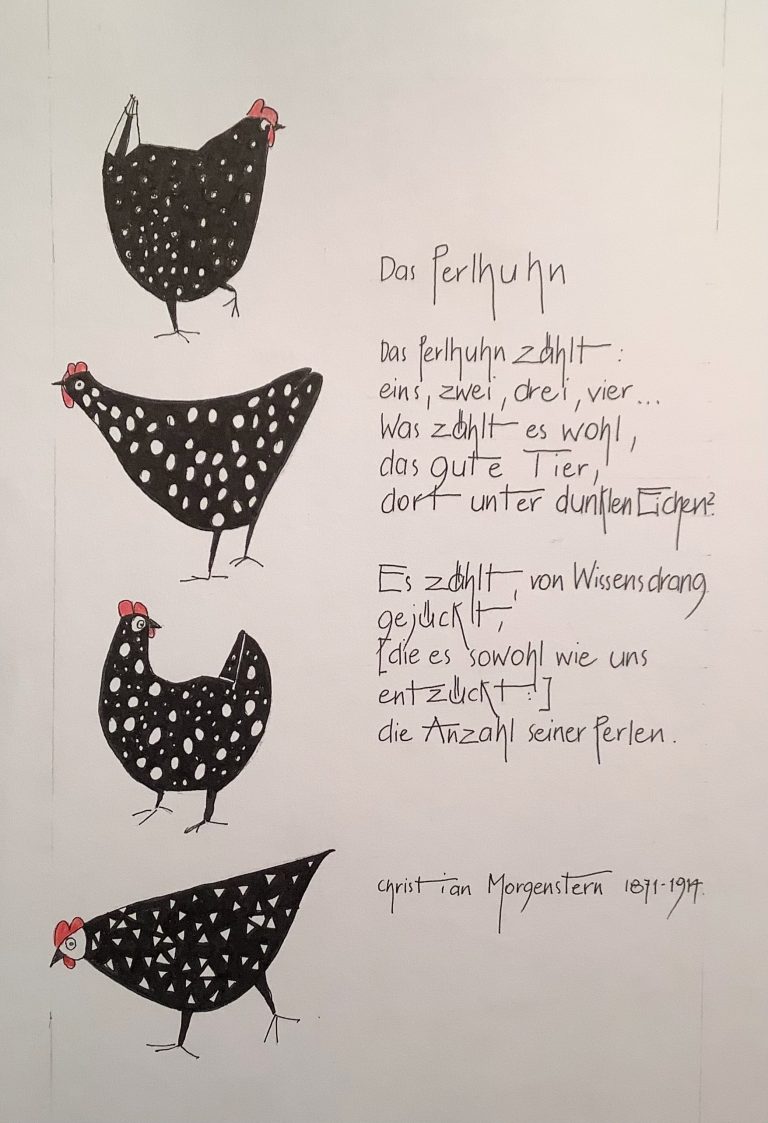 Das Perlhuhn
Das Perlhuhn zählt:
eins, zwei, drei, vier...
Was zählt es wohl,
das gute Tier,
dort unter dunklen Eichen?
Es zählt, von Wissensdrang
gejückt,
[die es sowohl wie uns
entzückt:]
die Anzahl seiner Perlen.
Christian Morgenstern 1871-1914.